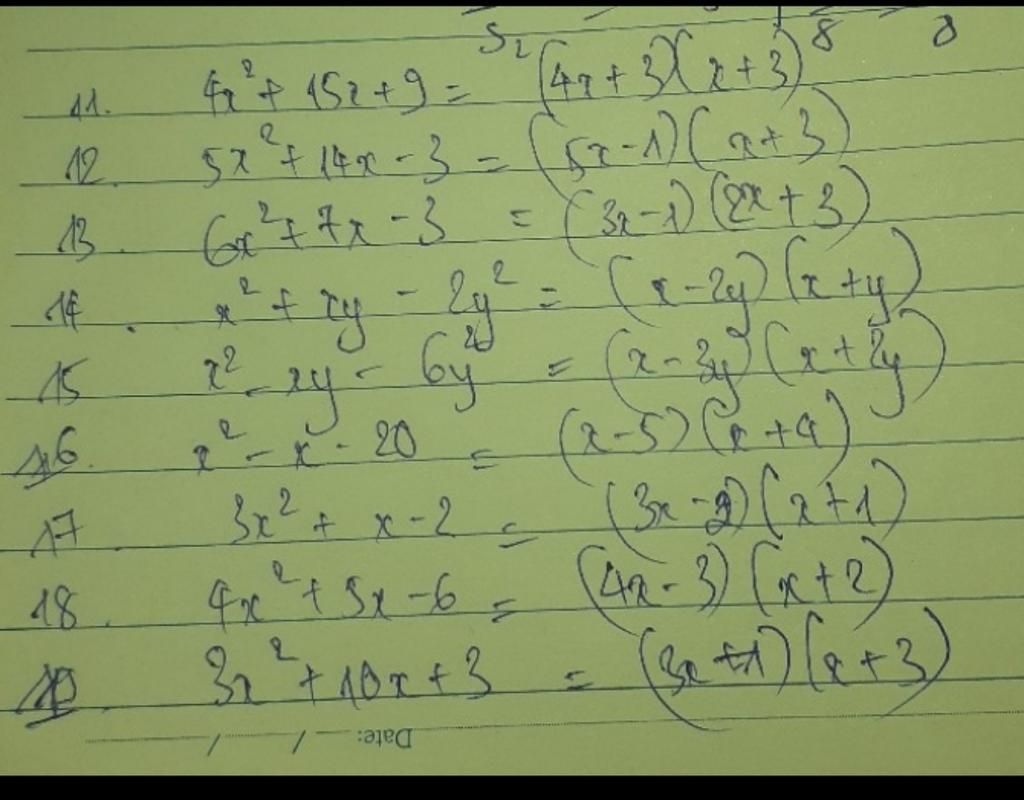 5₂ 8 8
11. 4x² + 15x + 9 = (4x + 3)(x + 3)
12. 5x² + 14x - 3 = (5x - 1)(x + 3)
13. 6x² + 7x - 3 = (3x - 1)(2x + 3)
14. x² + xy - 2y² = (x - 2y)(x + y)
15 x² - xy - 6y² = (x - 3y)(x + 2y)
16. x² - x - 20 = (x - 5)(x + 4)
17. 3x² + x - 2 = (3x - 2)(x + 1)
18. 4x² + 5x - 6 = (4x - 3)(x + 2)
3x² + 10x + 3 = (3x + 1)(x + 3)
Date: / /